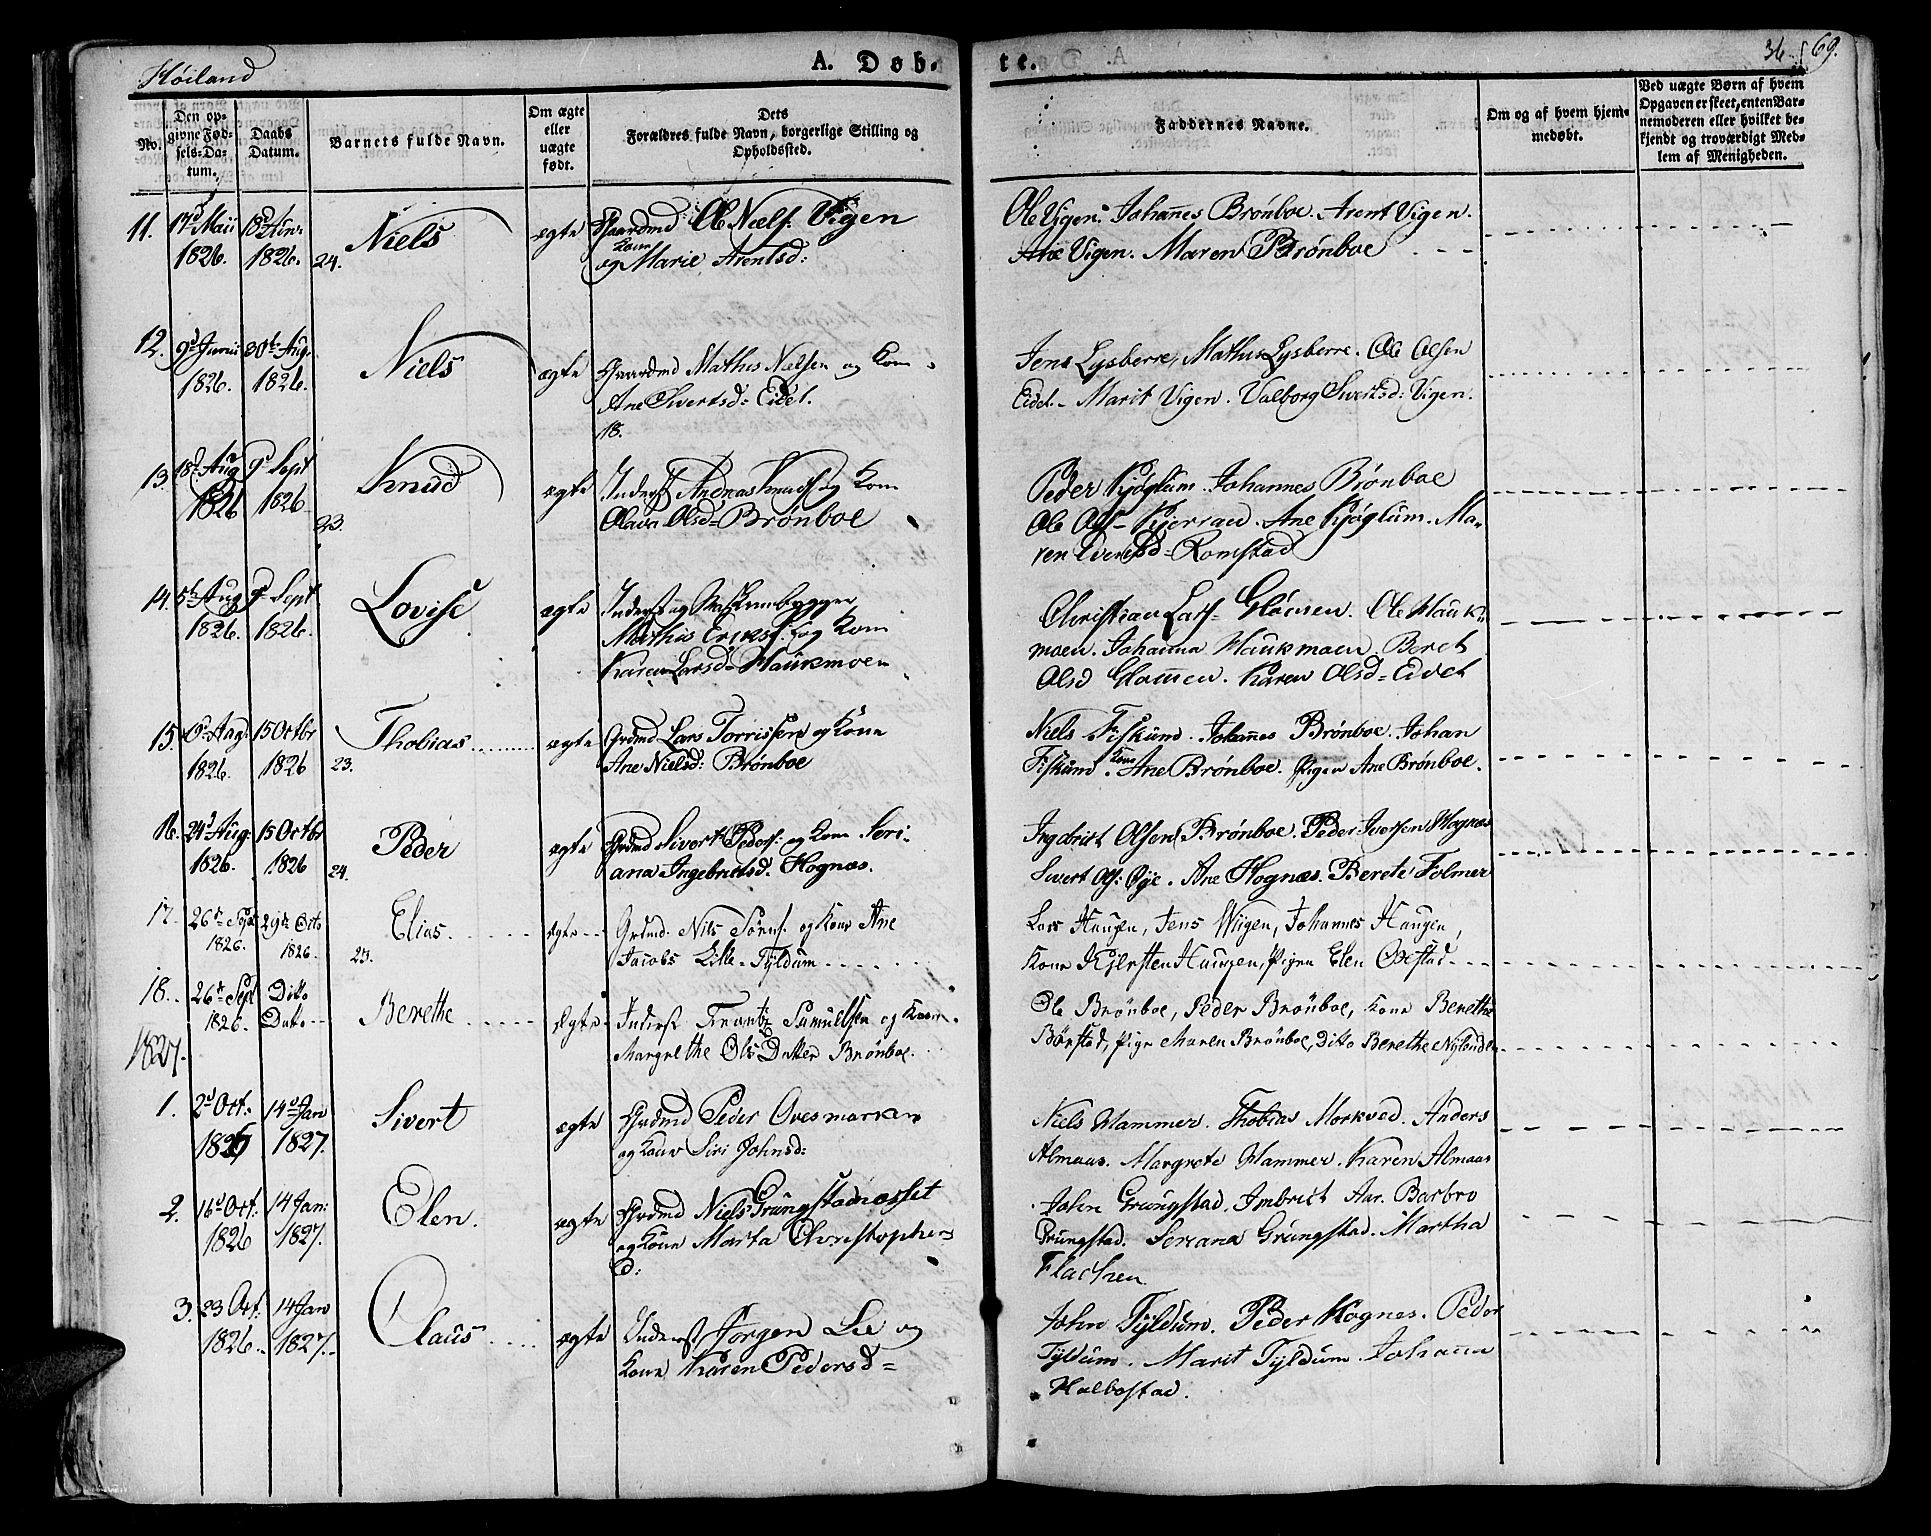 Høiland
A. Døbte.
36. 69.
No.
Den opgivne Fødsels-Datum.
Daabs Datum.
Barnets fulde Navn.
Om ægte eller uægte født.
Dets Forældres fulde Navn, borgerlige Stilling og Opholdssted.
Faddernes Navne.
Om og af hvem hjemmedøbt.
Ved uægte Børn af hvem Opgaven er skeet, enten Barnemoderen eller hvilket bekjendt og troværdigt Medlem af Menigheden.
11. 17d Maii 18d Jun:
1826. 1826. 24.
Niels
ægte
Gaardmd Ole Niels: Vigen
og Kone Marie Arentsd:
Ole Vigen. Johannes Brönboe. Arent Vigen.
Ane Vigen. Maren Brönboe
12. 9d Junii 30te Aug.
1826. 1826.
Niels
ægte
Gaardmd Mathis Nielsen og Kone
Ane Sivertsd: Eidet.
18.
Jens Lysberre, Mathis Lysberre. Ole Olsen
Eidet. Marit Vigen. Valborg Sivertsd: Vigen.
13. 18d Aug 9d Sept
1826 1826 23.
Knud
ægte
Inderst Andreas Knuds: og Kone
Olava Olsd- Brönboe
Peder Kjøglum. Johannes Brönboe
Ole Ols- Kjerran. Ane Kjøglum. Ma-
ren Evensd- Romstad
14. 5t Aug 9d Sept
1826. 1826.
Lovise
ægte
Inderst og
Mathis Ericks: og Kone
Karen Larsd- Haukmoen
Christian Lars- Glömen. Ole Hauk-
moen. Johanna Haukmoen. Beret
Olsd Glömen. Karen Olsd- Eidet
15. Aug: 15 Octbr
1826. 1826 23.
Thobias
ægte
Grdmd Lars Torrissen og Kone
Ane Nielsd: Brönboe
Niels Fiskum. Johannes Brönboe. Johan
Fiskum. Kone Ane Brönboe. Pigen Ane Brönboe.
16. 24d Aug. 15 Octbr
1826. 1826 24.
Peder
ægte
Grdmd Sivert Peders: og Kone Seri-
ana Ingebrictsd. Hognæs.
Ingebrict Olsen Brönboe. Peder Iversen Hognæs
Sivert Ols: Øye. Ane Hognæs. Berete Folmer
17. 26de Sept 29de Octb
1826. 1826. 23.
Elias
ægte
Grdmd. Nils Sörens. og Kone Ane
Jacobs Lille-Tyldum
Lars Haugen, Jens Wiigen, Johannes Haugen,
Kone Kjersten Haugen, Pigen Elen Överstad
18. 26de Sept Ditto
1826. Dato
Berethe
ægte
Inderst Frantz Samuelsen og Kone
Margrethe Ols Datter Brönboe.
Ole Brönboe, Peder Brönboe, Kone Berethe
Börstad, Pige Maren Brönboe, Ditto Berethe Nylanden
1827.
1. 2d Oct: 14d Jan
1826 1827.
Sivert
ægte
Grdmd Peder Ovesmarken
og Kone Siri Johnsd:
Niels Hammer. Thobias Morkved. Anders
Almaas. Margrete Hammer. Karen Almaas
2. 16d Oct. 14 Jan:
1826 1827.
Elen.
ægte
Grdmd Niels Grungstadnæsset
og Kone Marta Christophers
d:
John Grungstad. Imbrict Aar. Barbro
Grungstad. Seriana Grungstad. Martha
3. 23 Oct: 14 Jan
1826. 1827.
Claus
ægte
Inderst Jørgen Lie og
Kone Karen Pedersd=
John Tyldum. Peder Hognes. Peder
Tyldum. Marit Tyldum. Johanna
Halbostad.